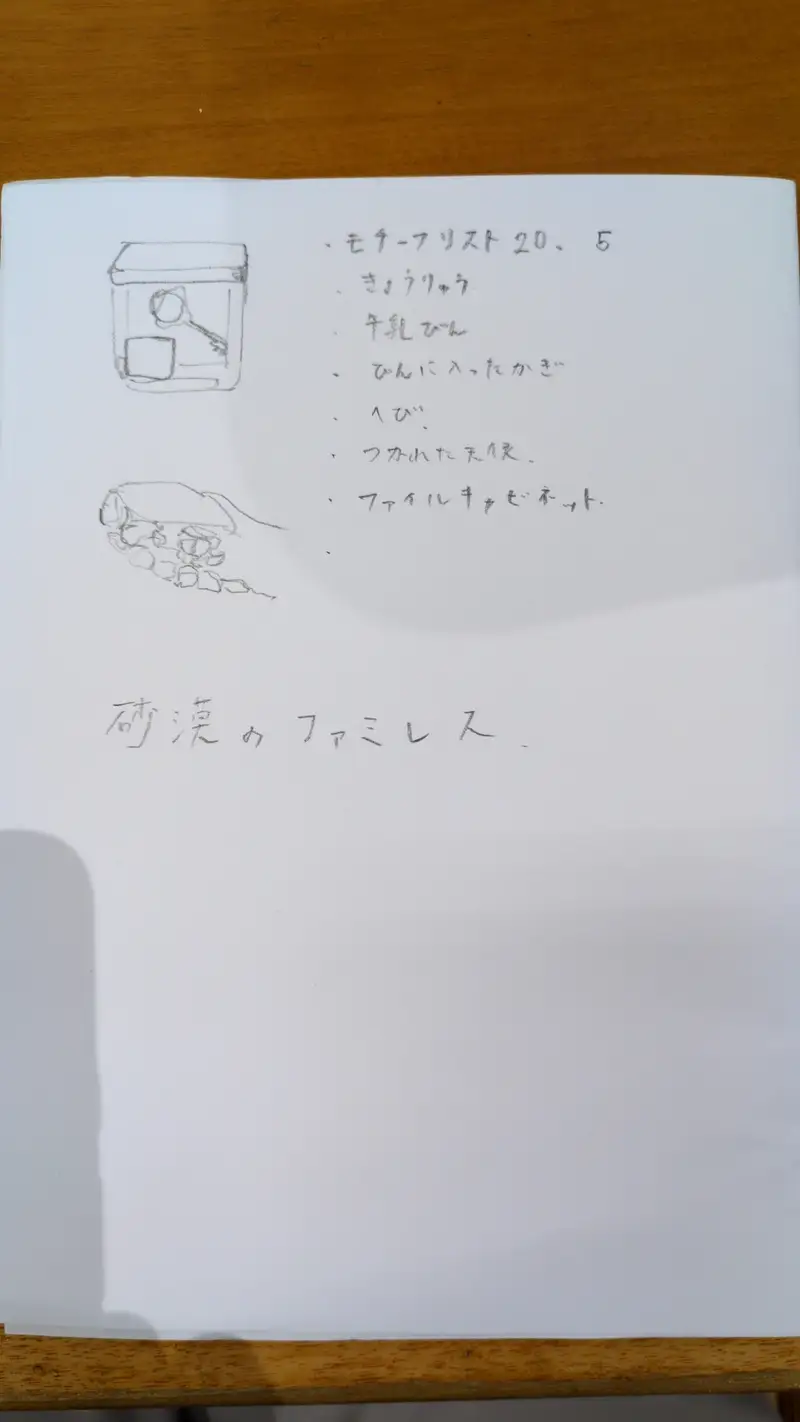 ・モチーフリスト20、5
・きょうりゅう
・牛乳びん
・びんに入ったかぎ
・へび.
・つかれた天使.
・ファイルキャビネット.
・
砂漠のファミレス.